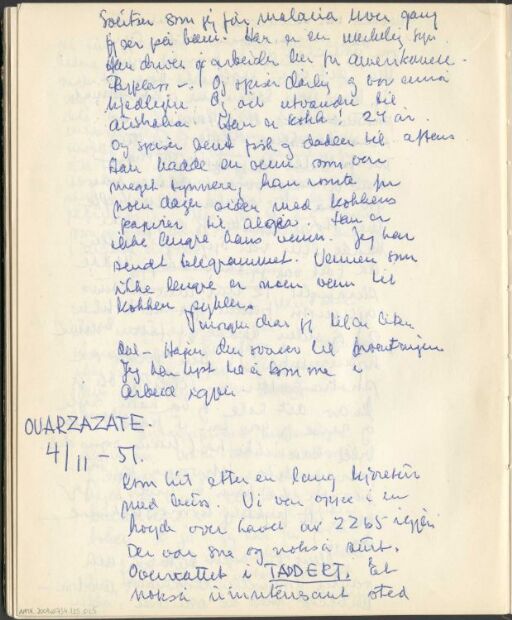 som jeg får malaria hver gang
jeg ser på ham. Han er en
Han driver og arbeider her for amerikanere.
Og spiser dårlig og bor ennå
Og vil utvandre til
Australia. Han er kokk! 24 år.
Og spiser sent fisk og dadler til aftens
Han hadde en venn som var
meget tynnere, han rømte for
noen dager siden med kokkens
papirer til Han er
ikke lengre hans venn. Jeg har
sendt telegrammet. Vennen som
ikke lengre er noen venn til
kokken
I morgen drar jeg til
til
Jeg har lyst til å komme i
arbeid igjen
OUARZAZATE.
4/11 - 51.
Kom hit etter en lang kjøretur
med buss. Vi var oppe i en
høyde over havet av 2265
Der var sne og nokså surt.
Overnattet i TADDERT. Et
nokså uinteressant sted